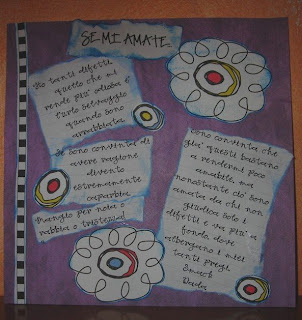 SE MI AMATE
Ho tanti difetti,
quello che mi
rende più odiosa è
l'urlo selvaggio
quando sono
arrabbiata
Se sono convinta di
avere ragione,
divento
estremamente
caparbia
Mangio per noia o
rabbia o tristezza!
Sono convinta che
già questi bastano
a rendermi poco
amabile, ma
nonostante ciò sono
amata da chi non
giudica solo i
difetti e va più a
fondo, dove
albergano i miei
tanti pregi
Dada